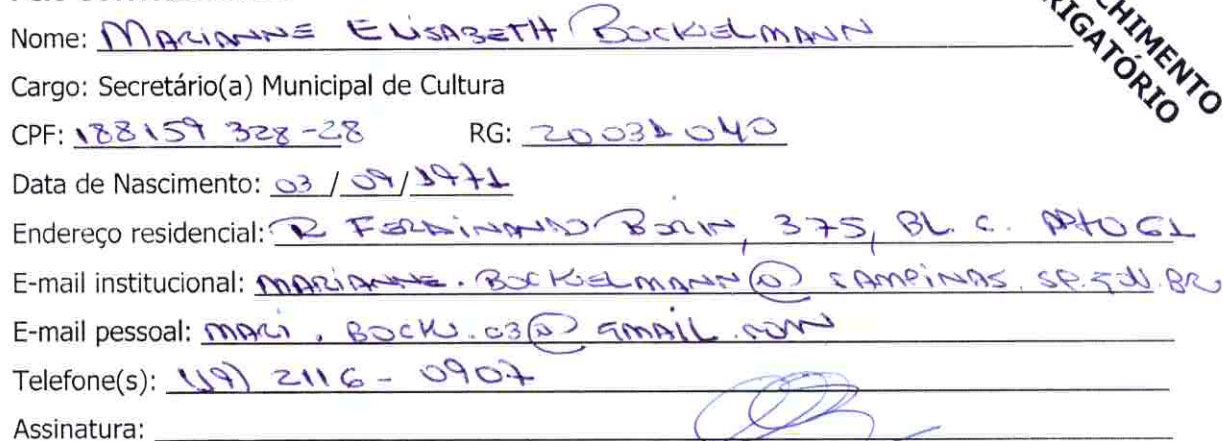 Nome: MARIANNE ELISABETH BOCKELMANN
CHIMENTO
RIGATÓRIO
Cargo: Secretário(a) Municipal de Cultura
CPF: 188159 328-28 RG: 20031040
Data de Nascimento: 03 / 09 / 1971
Endereço residencial: R FERDINANDO BORIN, 375, BL. C. APTO 61
E-mail institucional: MARIANNE.BOCKELMANN@CAMPINAS.SP.GOV.BR
E-mail pessoal:
Telefone(s): (19) 2116 - 0907
Assinatura: